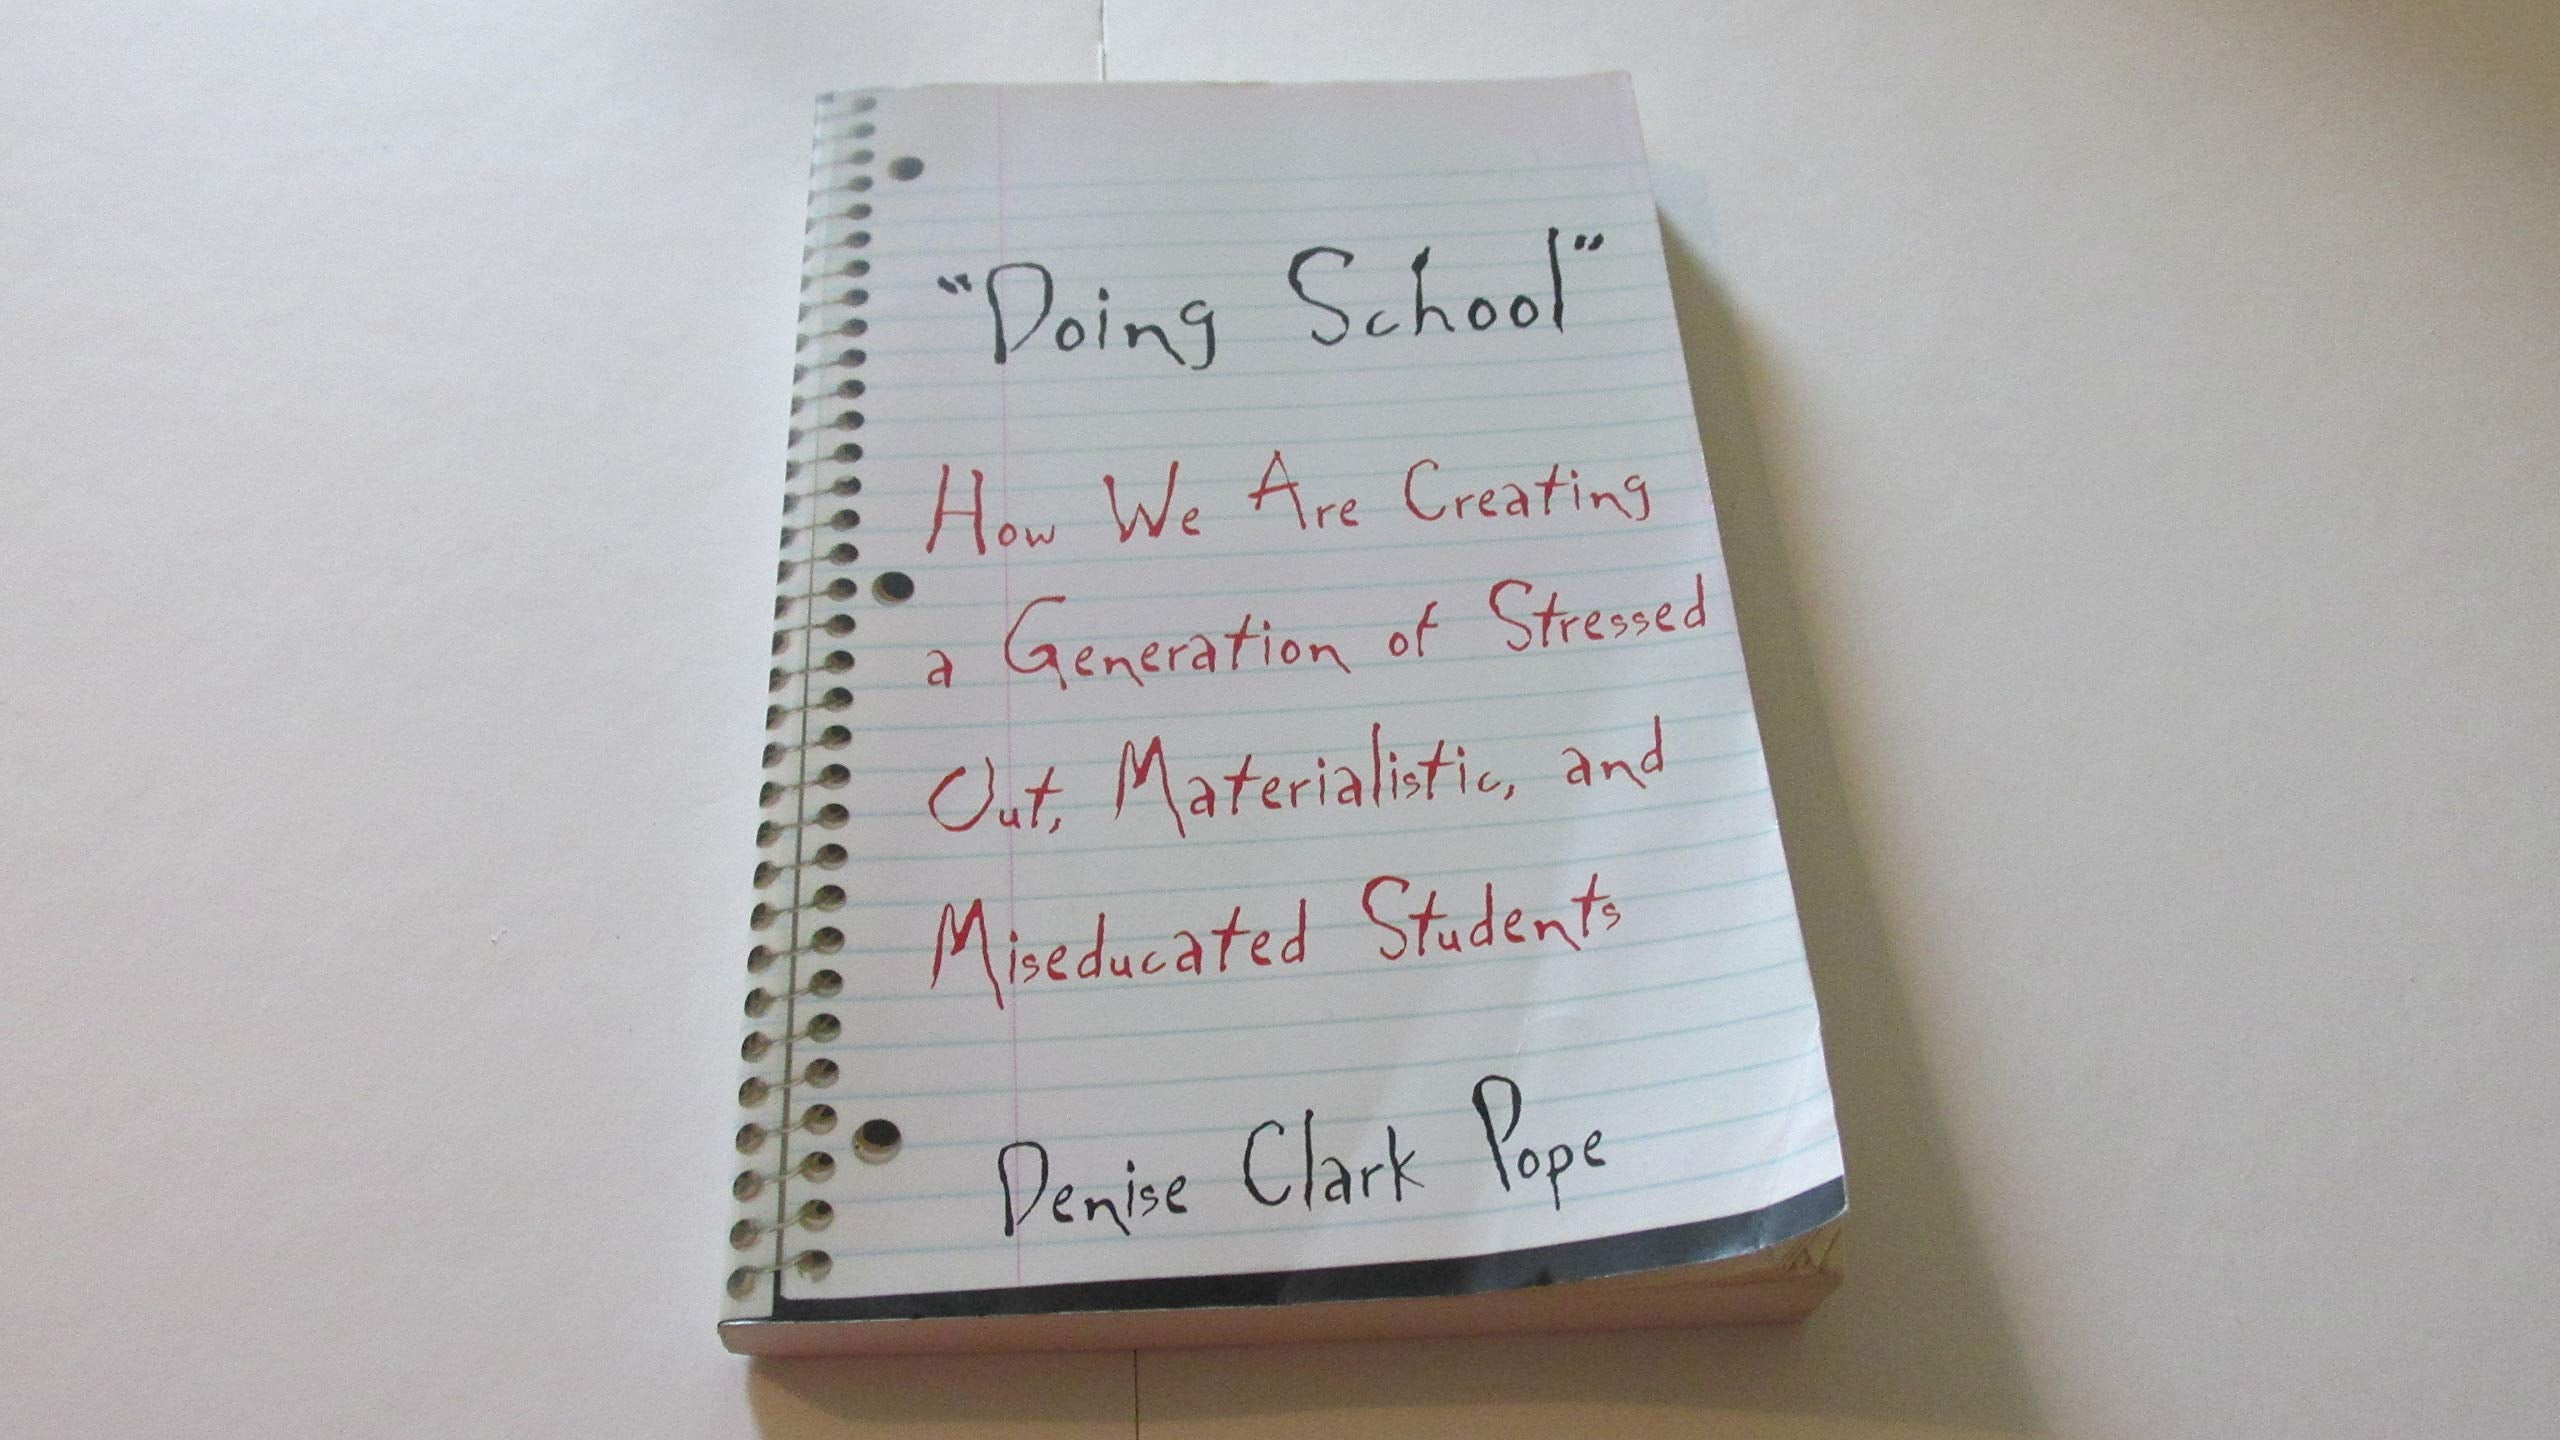 "Doing School"
How We Are Creating
a Generation of Stressed
Out, Materialistic, and
Miseducated Students
Denise Clark Pope